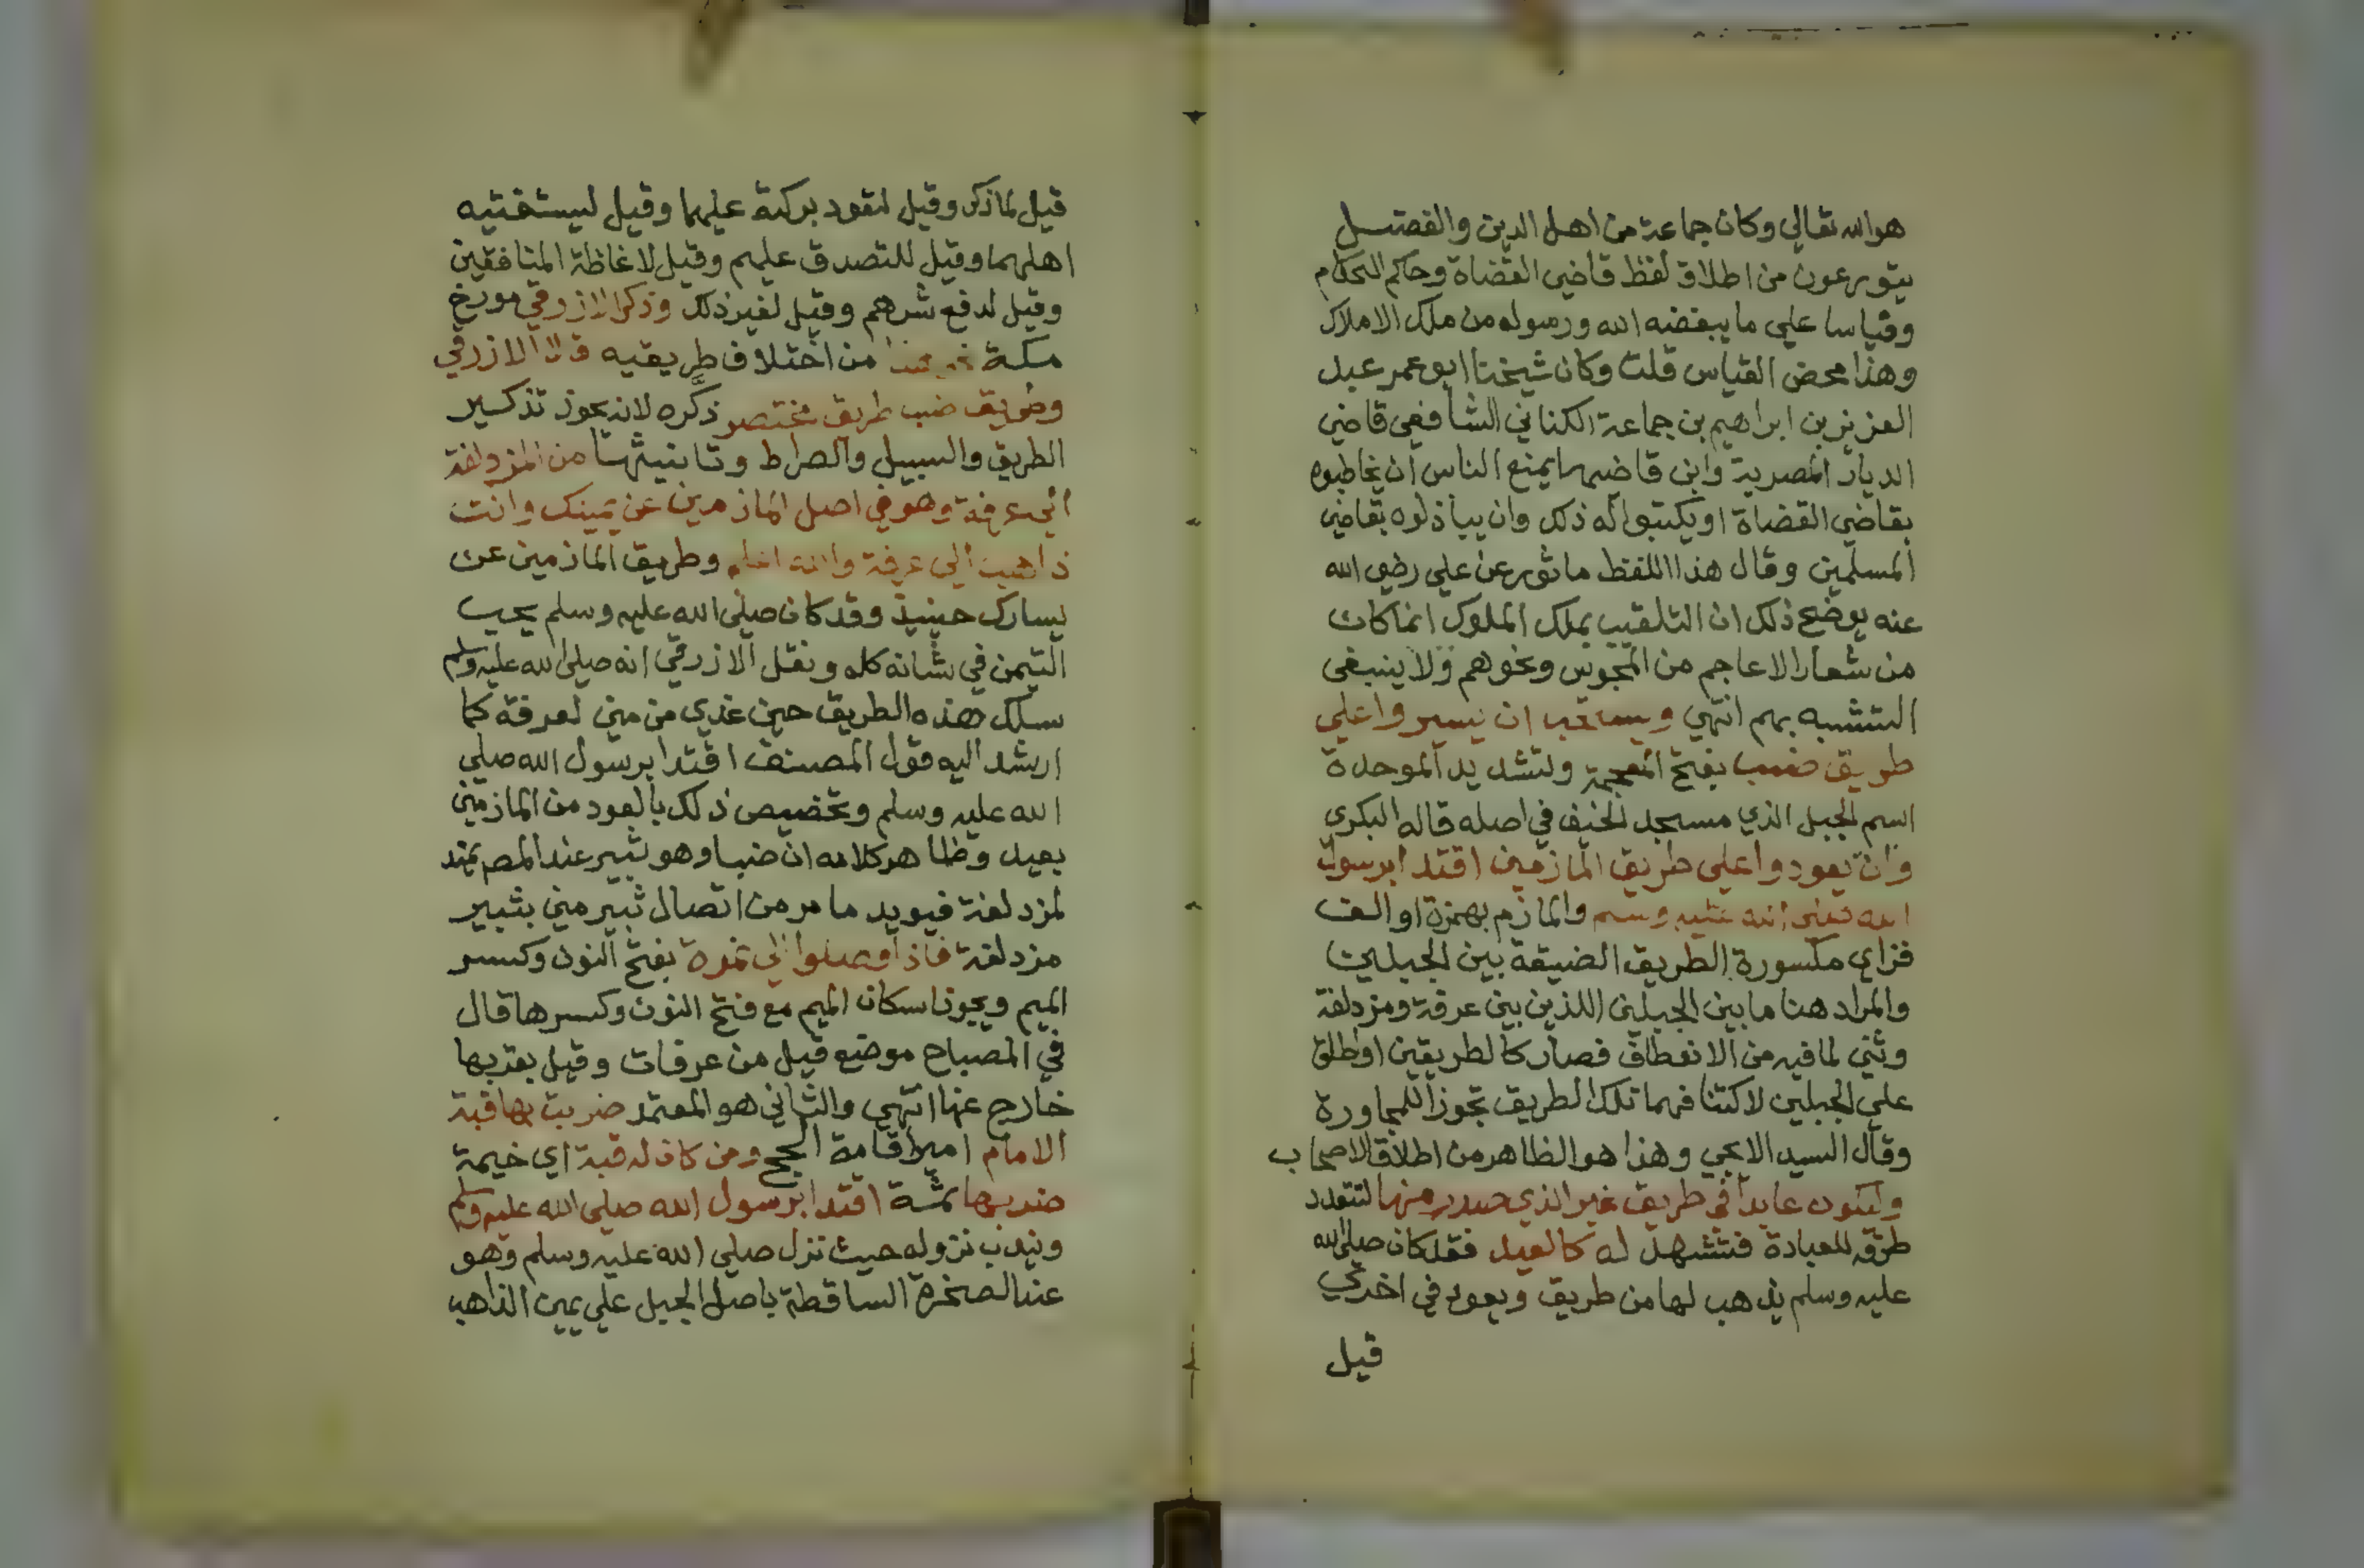 هو الله تعالي وكان جماعة من اهل الدين والفضل
يتورعون من اطلاق لفظ قاضي القضاة وحاكم الحكام
وقياسا علي ما يبغضه الله ورسوله من ملك الاملاك
وهذا محض القياس قلت وكان شيخنا ابو عمر عبد
العزيز بن ابراهيم بن جماعة الكناني الشافعي قاضي
الديار المصرية وابن قاضيها يمنع الناس ان يخاطبوه
بقاضي القضاة او يكتبوا له ذلك وان يبدلوه بقاضي
المسلمين وقال هذا اللفظ ماثور عن علي رضي الله
عنه يوضح ذلك ان التلقيب بملك الملوك انما كان
من شعار الاعاجم من المجوس ونحوهم ولا ينبغي
التشبه بهم انتهي ويستحب ان يسيروا علي
طريق ضب بفتح المعجمة وتشديد الموحدة
اسم للجبل الذي مسجد الخيف في اصله قاله البكري
وان يعودوا علي طريق المازمين اقتدا برسول
الله صلى الله عليه وسلم والمازم بهمزة او الف
فزاي مكسورة الطريق الضيقة بين الجبلين
والمراد هنا ما بين الجبلين اللذين بين عرفة ومزدلفة
وثني لما فيه من الانعطاف فصار كالطريقين او اطلق
علي الجبلين لاكتنافهما تلك الطريق تجوزا للمجاورة
وقال السيد الايجي وهذا هو الظاهر من اطلاق الاصحاب
وليكون عايدا في طريق غير الذي صدر منها لتتعدد
طرقه للعبادة فتشهد له كالعيد فقد كان صلى الله
عليه وسلم يذهب لها من طريق ويعود في اخري
قيل
قيل لما ذكر وقيل لتعود بركته عليهما وقيل ليستفتيه
اهلهما وقيل للتصدق عليهم وقيل لاغاظة المنافقين
وقيل لدفع شرهم وقيل لغير ذلك وذكر الازرقي مورخ
مكة من اختلاف طريقيه قال الازرقي
وطريق ضب طريق مختصر ذكّره لانه يجوز تذكير
الطريق والسبيل والصراط وتانيثها من المزدلفة
الي عرفة وهو في اصل المازمين عن يمينك وانت
ذاهب الي عرفة والله اعلم وطريق المازمين عن
يسارك حينيذ وقد كان صلى الله عليه وسلم يحب
التيمن في شانه كله ونقل الازرقي انه صلى الله عليه وسلم
سلك هذه الطريق حين غدي من مني لعرفة كما
ارشد اليه قول المصنف اقتدا برسول الله صلي
الله عليه وسلم وتخصيص ذلك بالعود من المازمين
بعيد وظاهر كلامه ان ضبا وهو ثبير عند المصم يمتد
لمزدلفة فيويد ما مر من اتصال ثبير مني بثبير
مزدلفة فاذا وصلوا الي نمرة بفتح النون وكسر
الميم ويجوز اسكان الميم مع فتح النون وكسرها قال
في المصباح موضع قيل من عرفات وقيل بقربها
خارج عنها انتهي والثاني هو المعتمد ضربت بها قبة
الامام امير اقامة الحج ومن كان له قبة اي خيمة
ضربها ثمّة اقتدا برسول الله صلى الله عليه وسلم
ويندب نزوله حيث نزل صلي الله عليه وسلم وهو
عند الصخرة الساقطة باصل الجبل علي يمين الذاهب